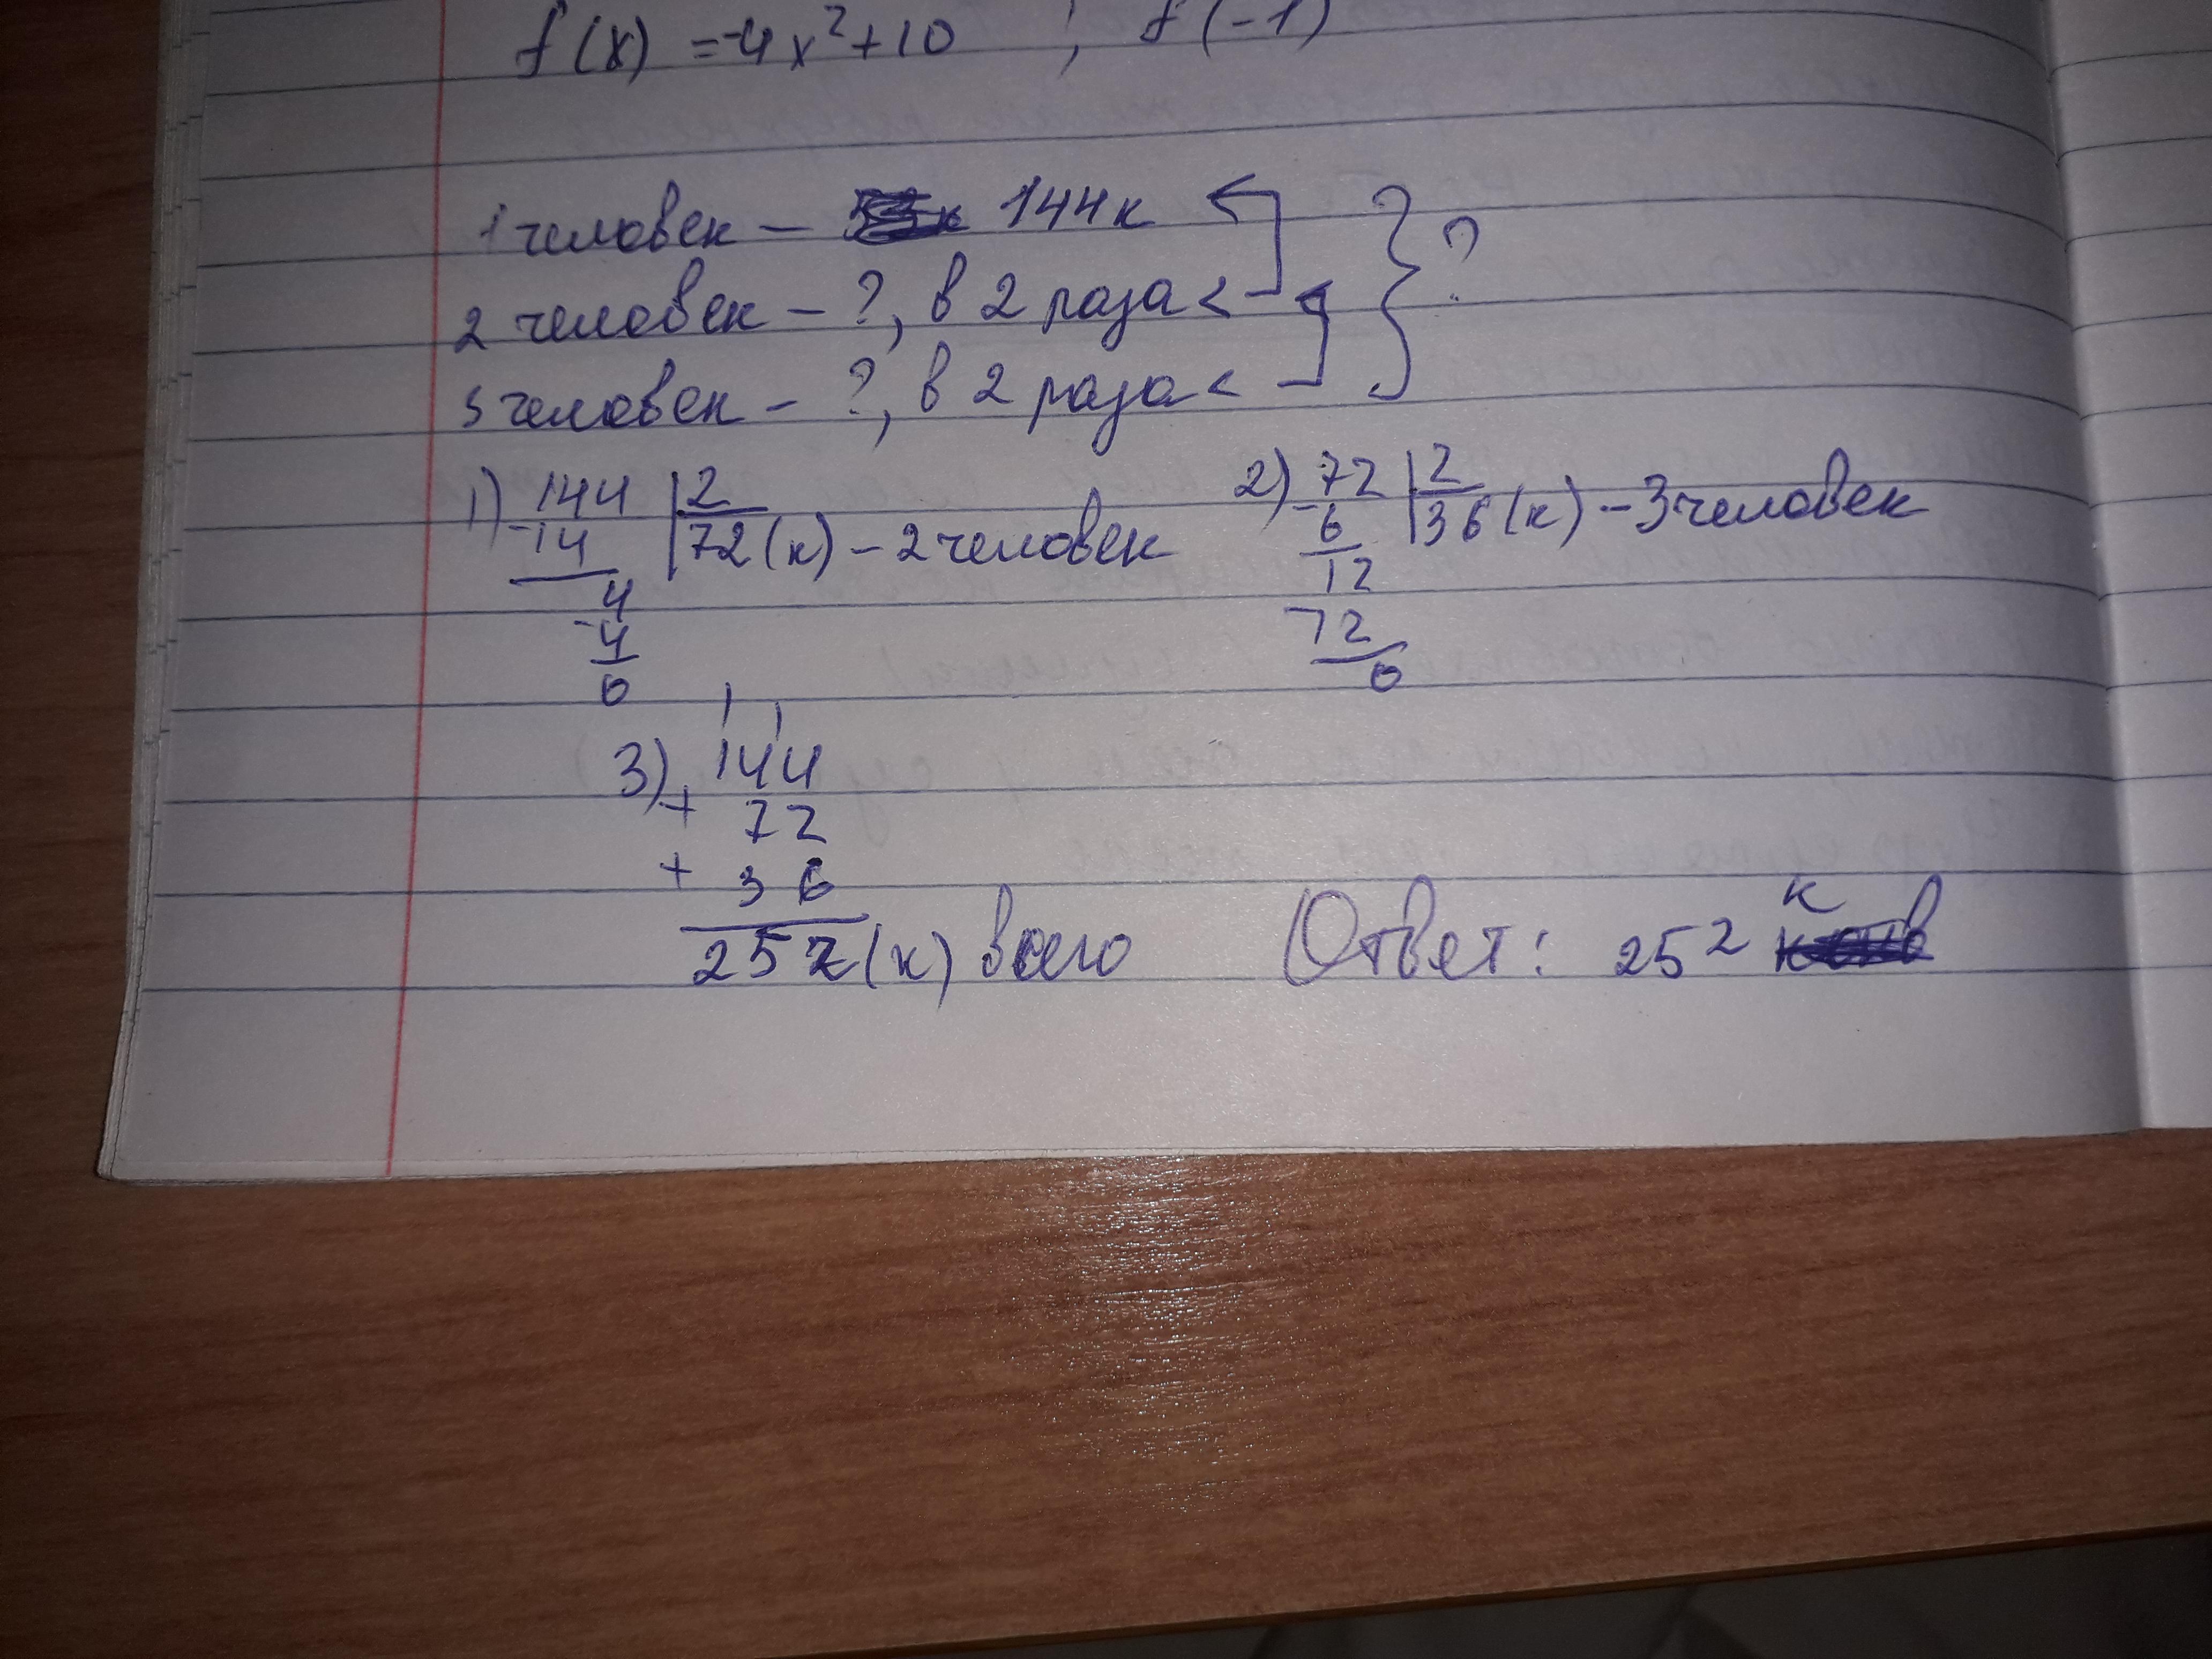 f(x) = -4x²+10 ; f(-1)
1 человек – 144к
2 человек – ?, в 2 раза <
3 человек – ?, в 2 раза <
} ?
1) 144 | 2
-14 72(к) – 2 человек
4
-4
0
2) 72 | 2
-6 36(к) – 3 человек
12
-12
0
1 1
3) 144
+ 72
+ 36
252(к) всего
Ответ: 252 к